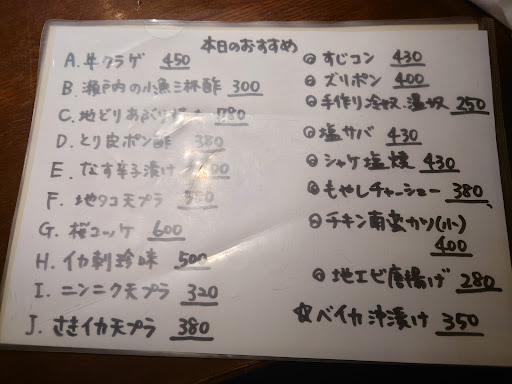 本日のおすすめ
A. 牛クラゲ 450
B. 瀬戸内の小魚三杯酢 300
C. 地どりあぶり 780
D. とり皮ポン酢 380
E. なす辛子漬け
F. 地タコ天プラ
G. 桜コッケ 600
H. イカ刺珍味 500
I. ニンニク天プラ 320
J. さきイカ天プラ 380
すじコン 430
ズリポン 400
手作り冷奴、湯奴 250
塩サバ 430
シャケ塩焼 430
もやしチャーシュー 380
チキン南蛮カツ(小)
400
地エビ唐揚げ 280
☆ベイカ沖漬け 350